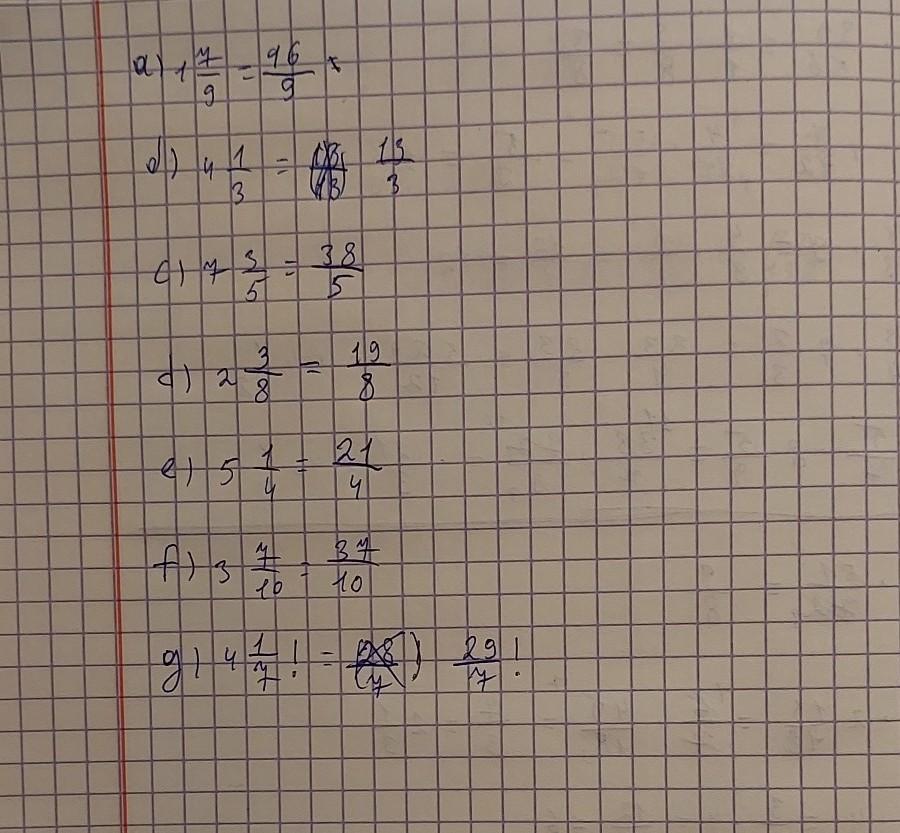 a) 1 7/9 = 96/9 x
b) 4 1/3 = 13/3
c) 7 3/5 = 38/5
d) 2 3/8 = 19/8
e) 5 1/4 = 21/4
f) 3 7/10 = 37/10
g) 4 1/7 ! = (28/7) 29/7 !